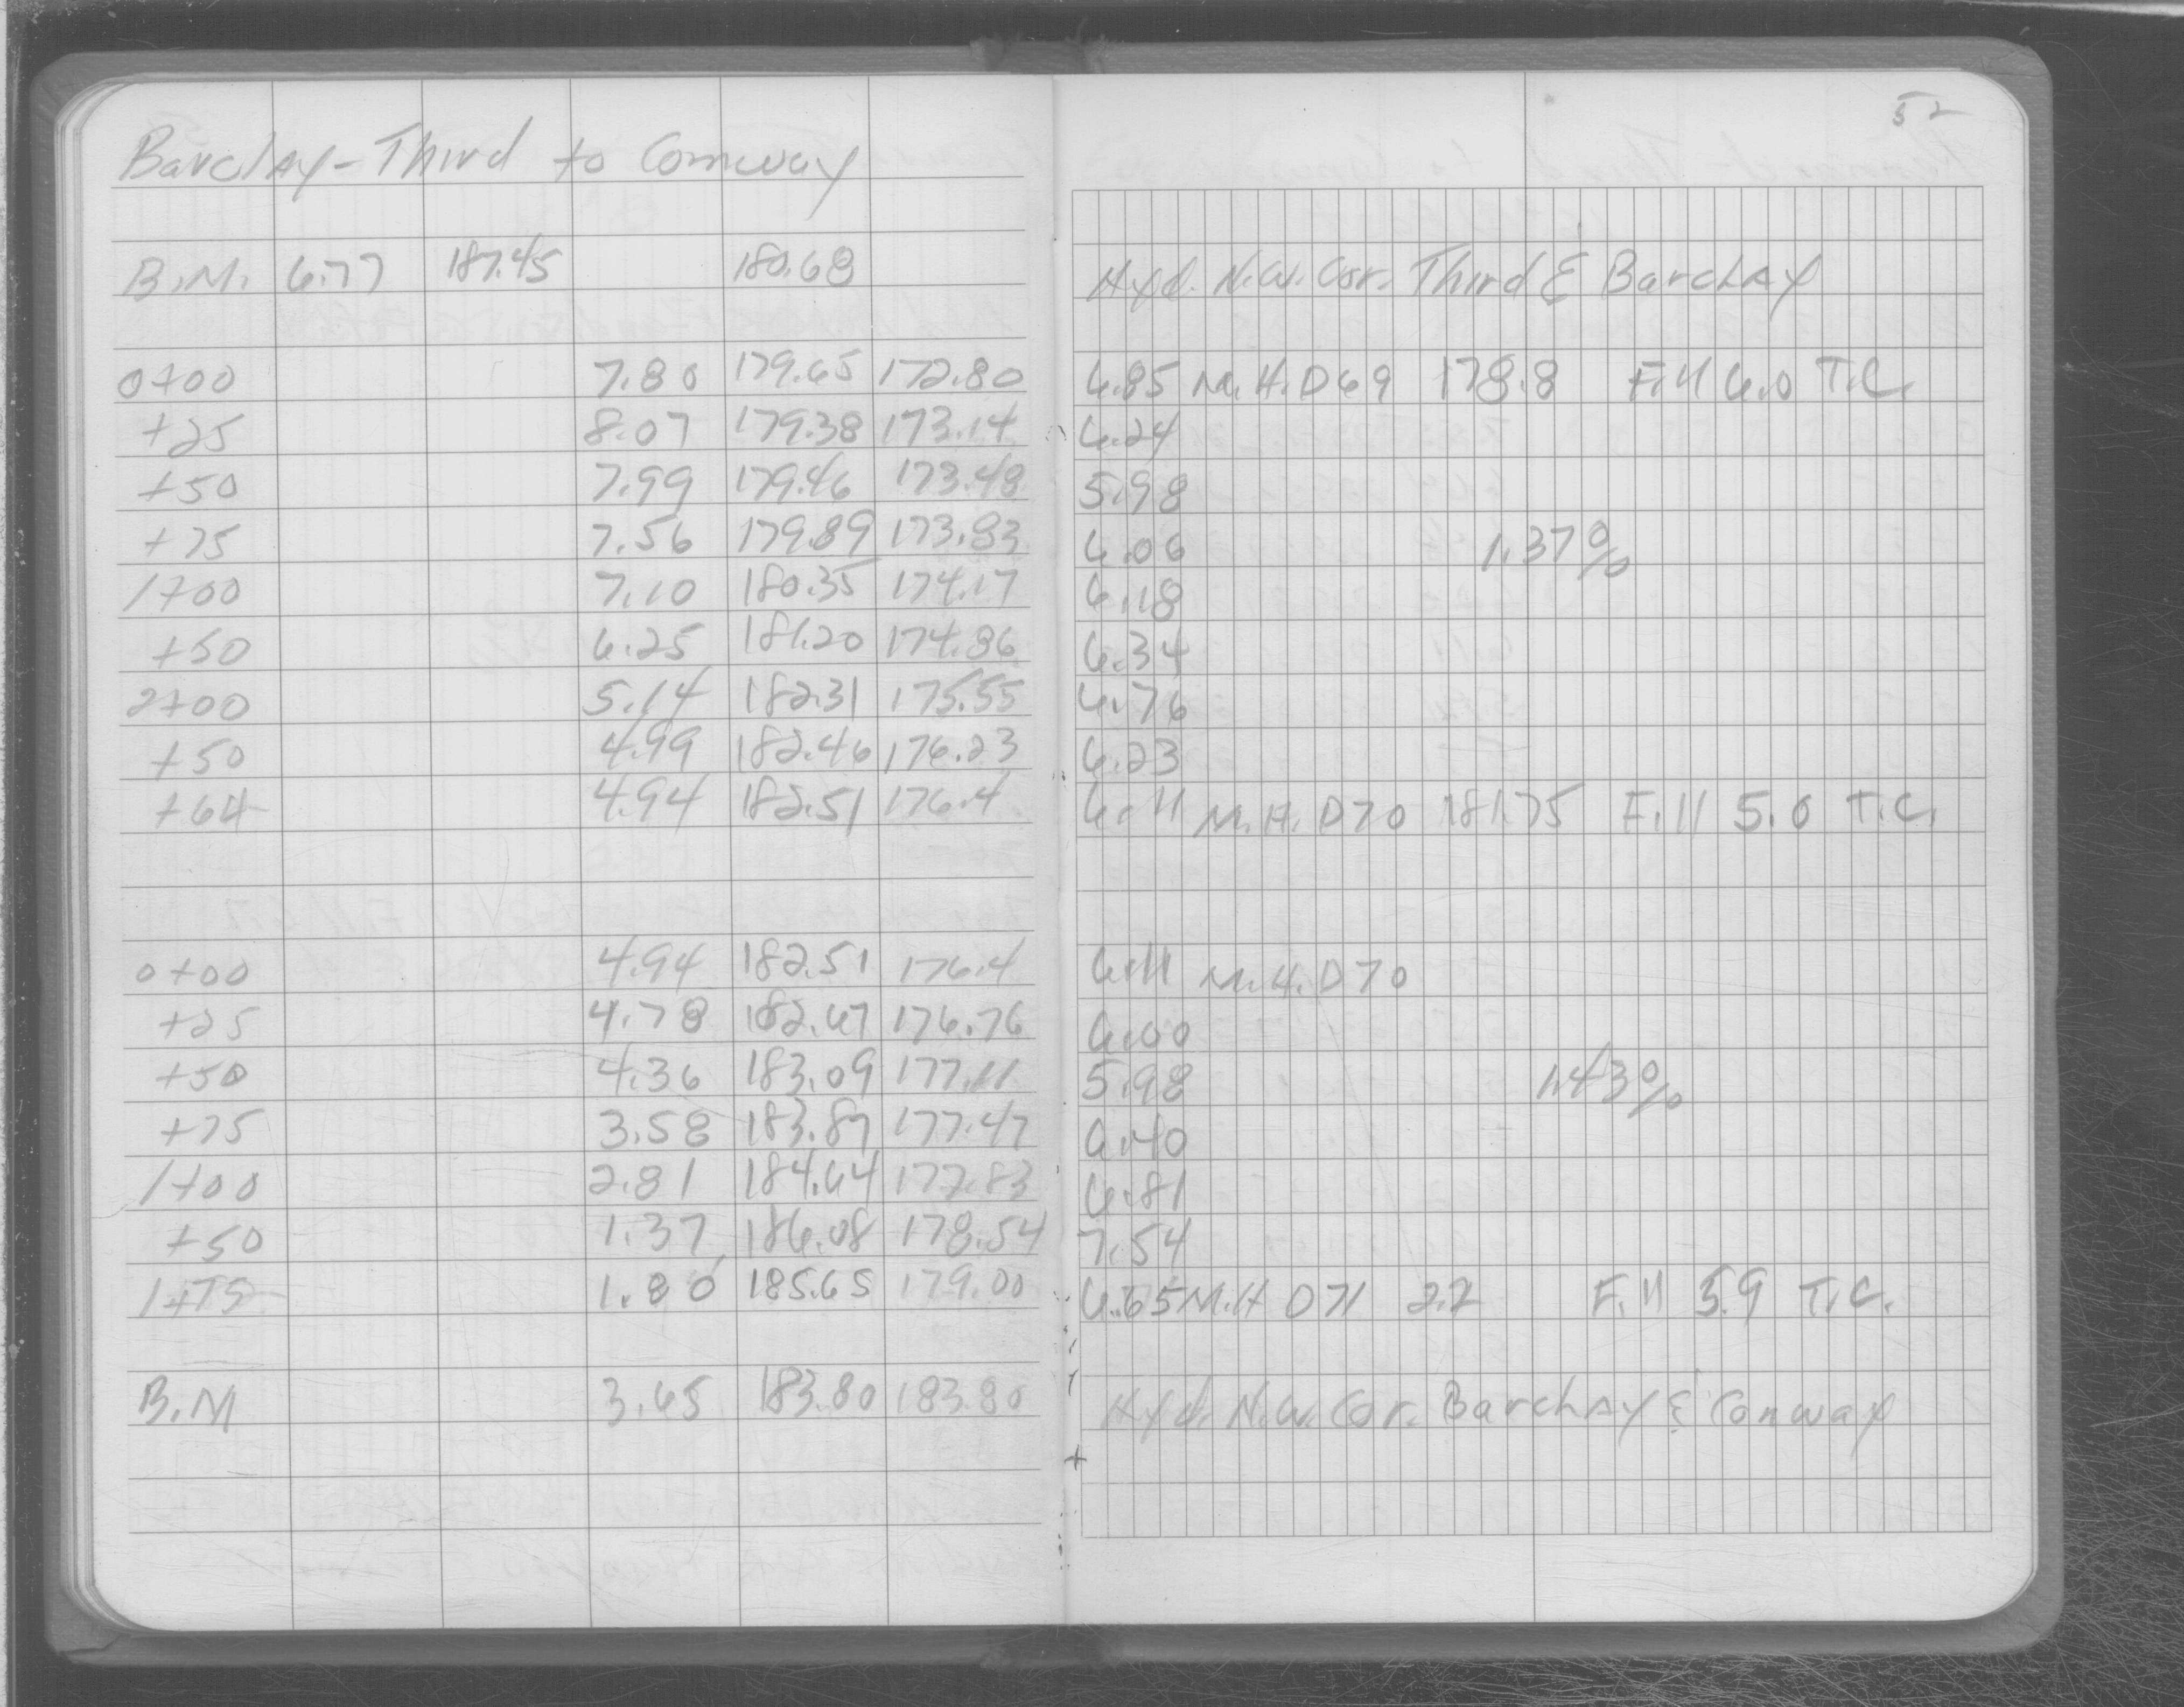 52
Barclay-Third to Conway
B.M. 6.77 187.45 180.68 Hyd. N.W. Cor. Third & Barclay
0+00 7.80 179.65 172.80 6.85 M.H. D69 178.8 Fill 6.0 T.C.
+25 8.07 179.38 173.14 6.24
+50 7.99 179.46 173.48 5.98
+75 7.56 179.89 173.83 6.06 1.37%
1+00 7.10 180.35 174.17 6.18
+50 6.25 181.20 174.86 6.34
2+00 5.14 182.31 175.55 6.76
+50 4.99 182.46 176.23 6.23
+64 4.94 182.51 176.4 6.11 M.H. D70 181.75 Fill 5.0 T.C.
0+00 4.94 182.51 176.4 6.11 M.H. D70
+25 4.78 182.67 176.76 6.00
+50 4.36 183.09 177.11 5.98 1.43%
+75 3.58 183.87 177.47 6.40
1+00 2.81 184.64 177.83 6.81
+50 1.37 186.08 178.54 7.54
1+75 1.80 185.65 179.00 6.65 M.H D71 2.2 Fill 5.9 T.C.
B.M 3.65 183.80 183.80 Hyd. N.W. Cor. Barclay & Conway